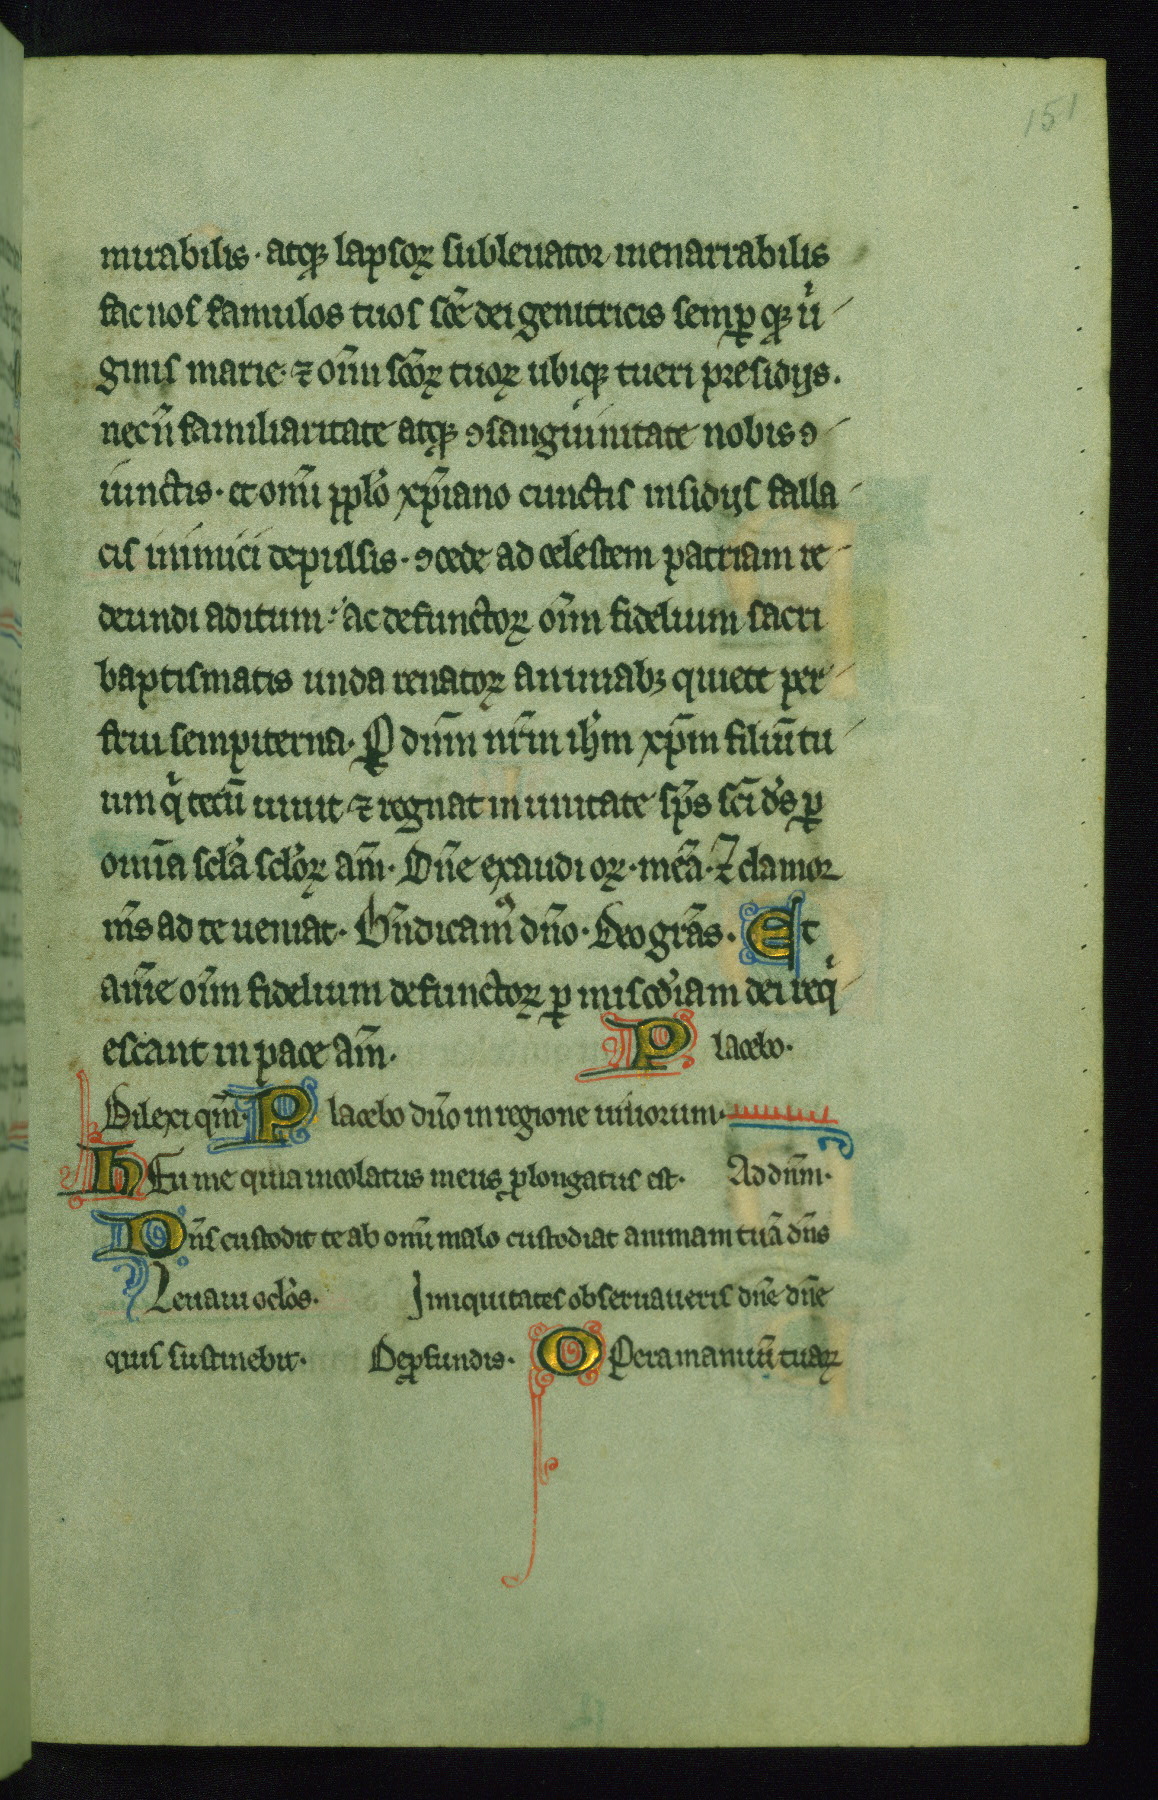 151
mirabilis · atqꝫ lapsoꝝ subleuator inenarrabilis
fac nos famulos tuos sc̄e dei genitricis semꝑ qꝫ uͥ
ginis marie · ⁊ om̄i sc̄oꝝ tuoꝝ ubiqꝫ tueri presidijs .
necū familiaritate atqꝫ ꝯsanguinitate nobis ꝯ
iunctis · et om̄i pp̄lo xp̄iano cunctis insidijs falla
cis inimici depulsis · ꝯcede ad celestem patriam re
deundi aditum : ac defunctoꝝ om̄ fidelium sacri
baptismatis unda renatoꝝ animabꝫ quiete per
frui sempiterna · Ꝑ dn̄m nr̄m ih̄m xp̄m filiū tu
um qͥ tecū uiuit ⁊ regnat in unitate sp̄s sc̄i d̄s ꝑ
omīa scl̄a scl̄oꝝ am̄ · Dn̄e exaudi oꝝ · meā · ⁊ clamor
m̄s ad te ueniat · Bn̄dicam᷒ dn̄o · Deo gr̄as · Et
aīe om̄ fidelium defunctoꝝ ꝑ misc̄diam dei reqͥ
escant in pace am̄ · Placebo ·
Dilexi qm̄ · Placebo dn̄o in regione uiuorum ·
hEu me quia incolatus meus ꝓlongatus est · Ad dn̄m ·
Dn̄s custodit te ab om̄i malo custodiat animam tuā dn̄s
Leuaui oclōs · Iniquitates obseruaueris dn̄e dn̄e
quis sustinebit · De ꝓfundis · OPera manuū tuaꝝ